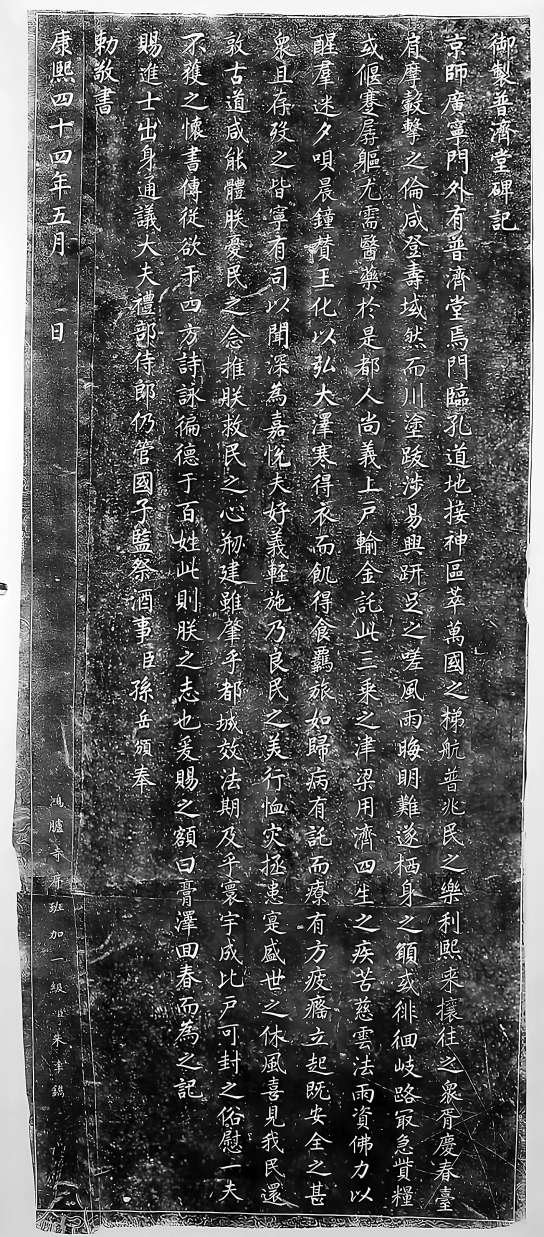 御製普濟堂碑記
京師廣寧門外有普濟堂焉門臨孔道地接神區萃萬國之梯航普兆民之樂利熙来攘往之衆胥慶春臺
肩摩轂擊之倫咸登壽域然而川塗跋涉易興趼足之嗟風雨晦明難遂栖身之願或徘徊岐路冣急貲糧
或偃蹇孱軀尤需醫藥於是都人尚義上戸輸金託此三乘之津梁用濟四生之疾苦慈雲法雨資佛力以
醒羣迷夕唄晨鐘賛王化以弘大澤寒得衣而飢得食羈旅如歸病有託而療有方疲癃立起既安全之甚
衆且存歿之皆寧有司以聞深為嘉悅夫好義輕施乃良民之美行恤灾拯患寔盛世之休風喜見我民還
敦古道咸能體朕憂民之念推朕救民之心剏建雖肇乎都城效法期及乎寰宇成比戸可封之俗慰一夫
不獲之懷書傳從欲于四方詩詠徧德于百姓此則朕之志也爰賜之額曰膏澤回春而為之記
賜進士出身通議大夫禮部侍郎仍管國子監祭酒事臣孫岳頒奉
勅敬書
康熙四十四年五月 日
鴻臚寺序班加一級臣朱鐫